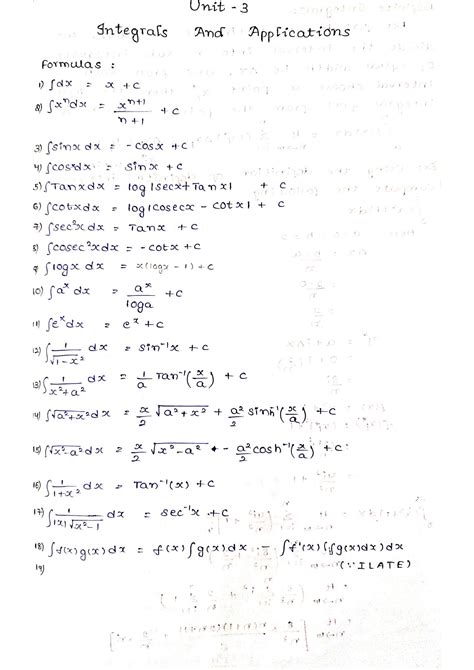 Unit - 3
Integrals And Applications
Formulas :
1) ∫dx = x + c
2) ∫xⁿdx = xⁿ⁺¹/n+1 + c
3) ∫sinx dx = - cosx + c
4) ∫cosxdx = sinx + c
5) ∫Tanxdx = log|secx+Tanx| + c
6) ∫cotxdx = log|cosecx - cotx| + c
7) ∫sec²xdx = Tanx + c
8) ∫cosec²xdx = -cotx + c
9) ∫logx dx = x(logx - 1) + c
10) ∫aˣ dx = aˣ/loga + c
11) ∫eˣdx = eˣ + c
12) ∫1/√1-x² dx = sin⁻¹x + c
13) ∫1/x²+a² dx = 1/a Tan⁻¹(x/a) + c
14) ∫√a²+x² dx = x/2 √a²+x² + a²/2 sinh⁻¹(x/a) + c
15) ∫√x²-a² dx = x/2 √x²-a² - a²/2 cosh⁻¹(x/a) + c
16) ∫1/1+x² dx = Tan⁻¹(x) + c
17) ∫1/|x|√x²-1 dx = sec⁻¹x + c
18) ∫f(x)g(x)dx = f(x)∫g(x)dx - ∫f'(x)[∫g(x)dx)dx
19) (∵ILATE)